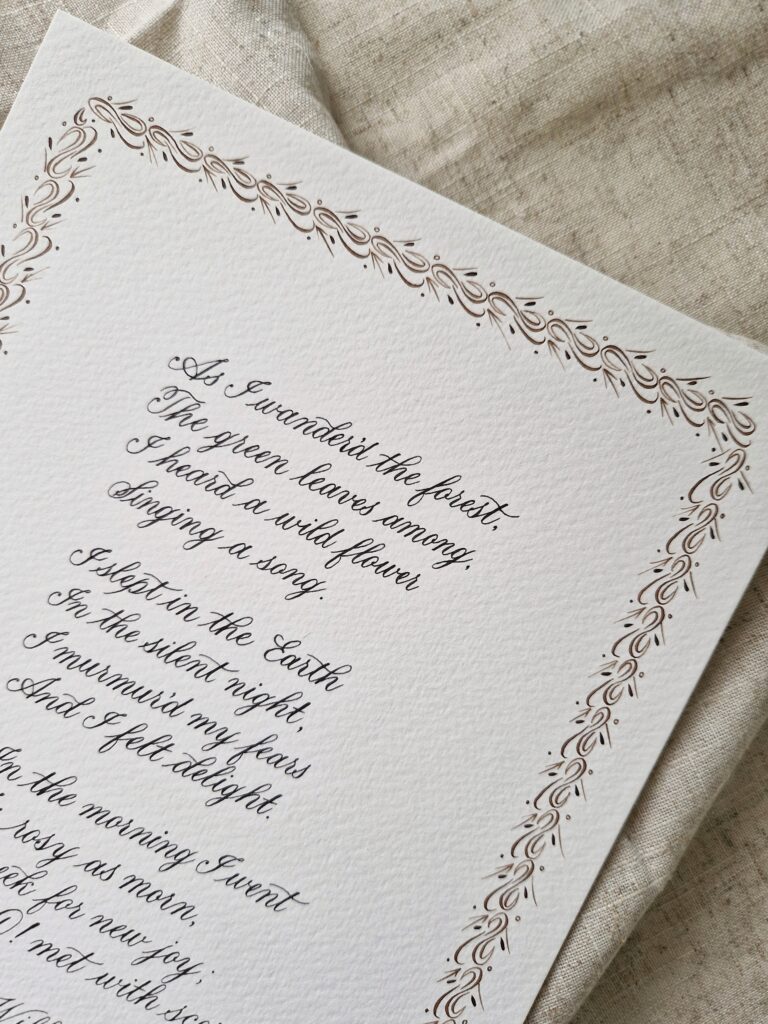 As I wander'd the forest,
The green leaves among,
I heard a wild flower
Singing a song.
I slept in the Earth
In the silent night,
I murmur'd my fears
And I felt delight.
In the morning I went
rosy as morn,
for new joy;
O! met with